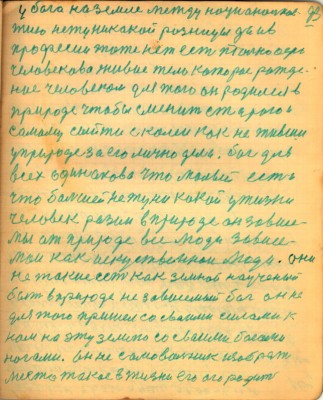 у бога на земле между национальнос 93
тию нету никакой розницы да и в
професии тоже нет есть только одно
человекова живие тело которое рожде-
ние человеком для того он родился в
природе чтобы сменить старого а
самому сойти с колеи как не живши
у природе за его лично дело. бог для
всех одинакова что малый есть
что большей нету никакой у жизни
человек разом в природе он зависе-
мы от природе все люди зависе-
мыи как искуственыи люди. они
не такие есть как земной наученый
быть в природе не зависимый бог он не
для того пришел со своими силами к
нам на эту землю со своими босыми
ногами. он не самозваник избрать
место такое в жизни его огородить